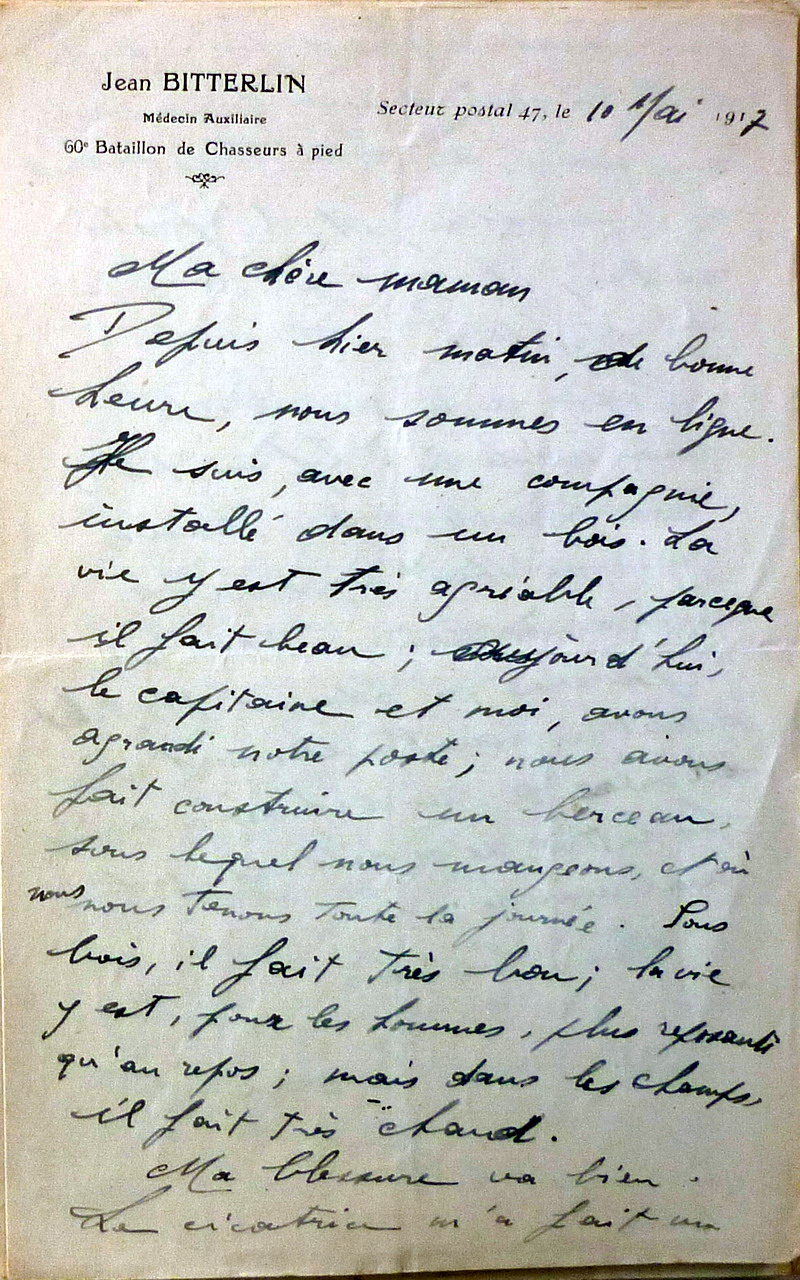 Jean BITTERLIN
Médecin Auxiliaire
60e Bataillon de Chasseurs à pied
Secteur postal 47, le 10 Mai 1917
Ma chère maman
Depuis hier matin, de bonne
heure, nous sommes en ligne.
Je suis, avec une compagnie,
installé dans un bois. La
vie y est très agréable, parceque
il fait beau ; aujourd'hui,
le capitaine et moi, avons
agrandi notre poste ; nous avons
fait construire un berceau,
sous lequel nous mangeons, et où
nous nous tenons toute la journée. Sous
bois, il fait très bon ; la vie
y est, pour les hommes, plus reposante
qu'au repos ; mais dans les champs,
il fait très "chaud.
Ma blessure va bien.
La cicatrice m'a fait un